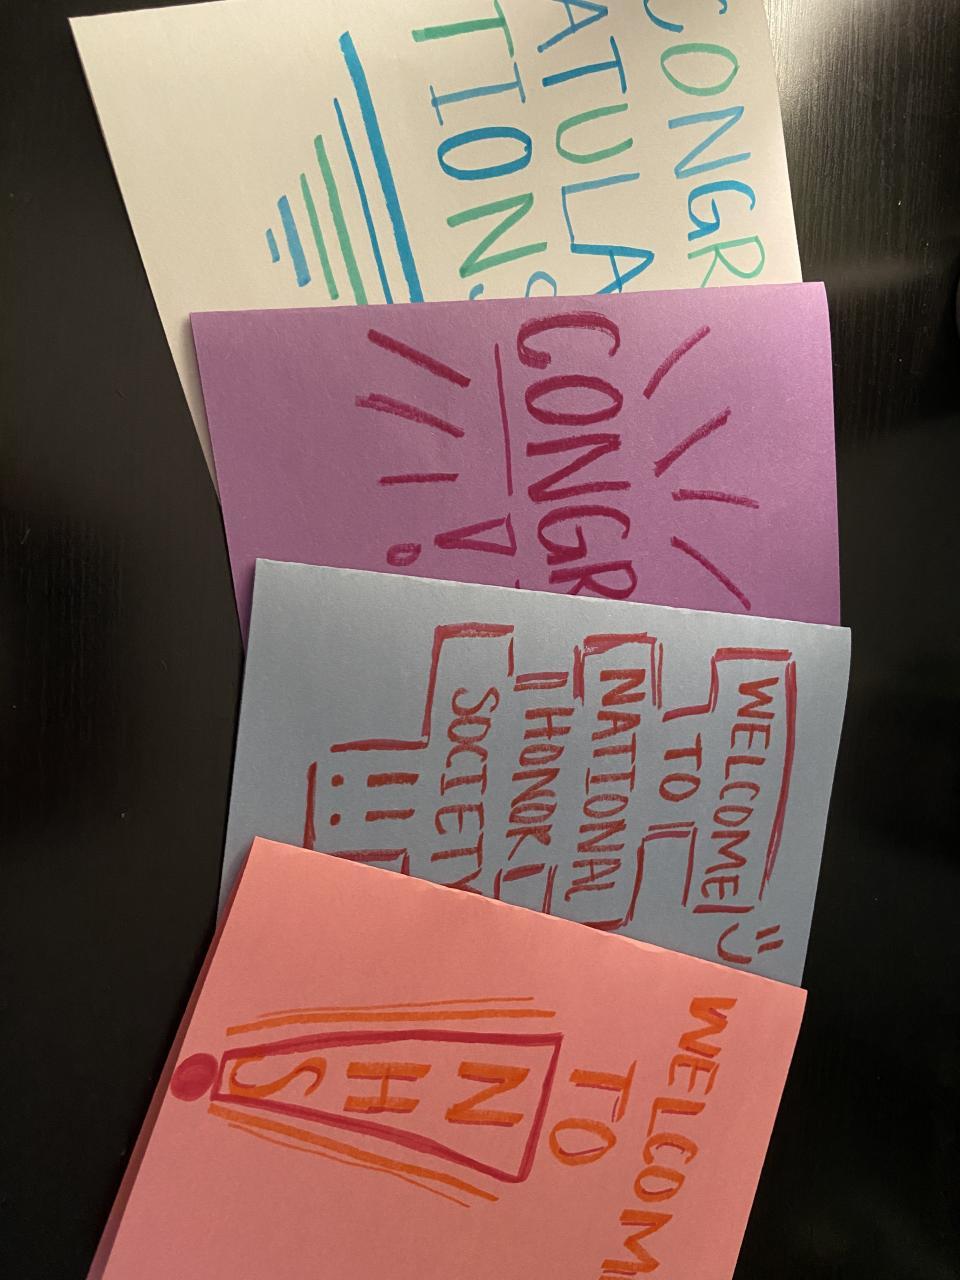 CONGR
ATULA
TIONS
CONGR
!
WELCOME
TO
NATIONAL
HONOR
SOCIETY
!!
WELCOM
TO
N
H
S